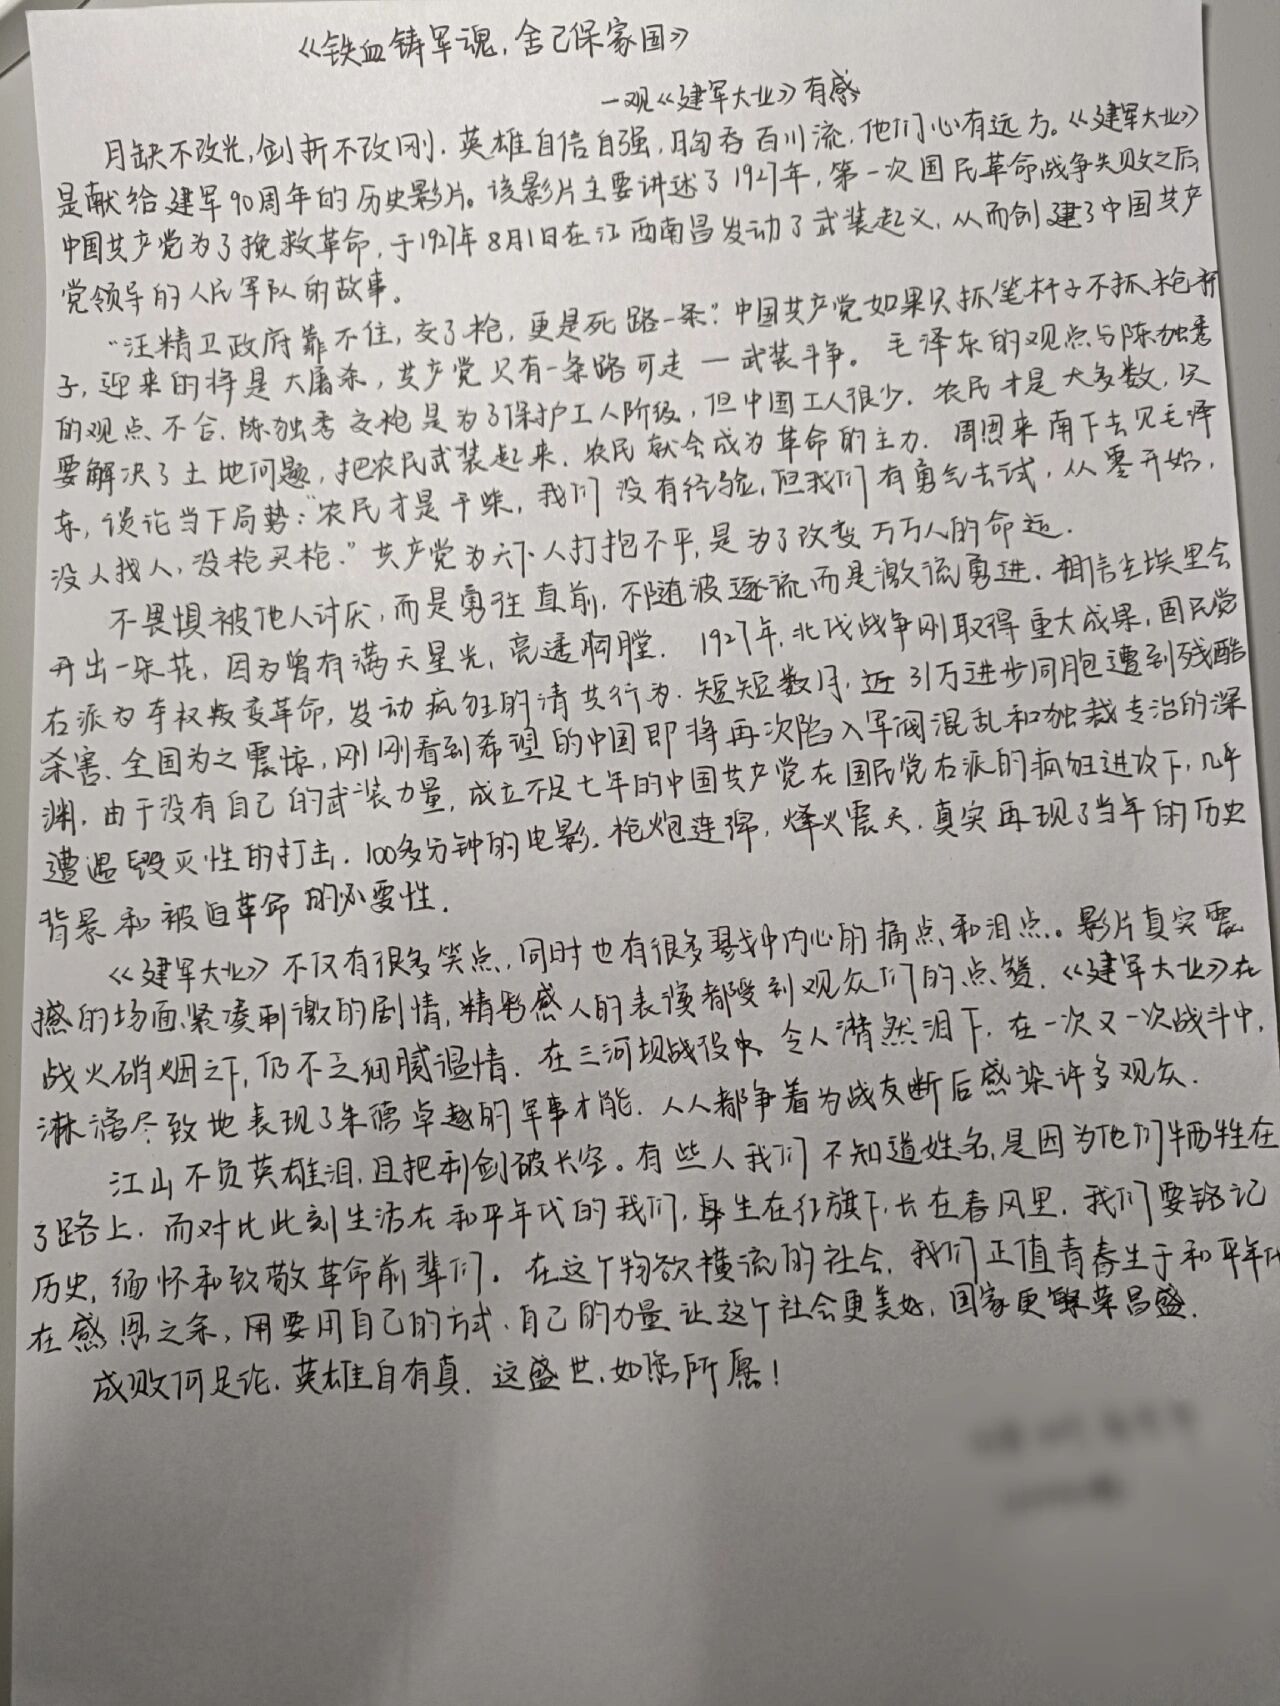 《铁血铸军魂,舍己保家国》
—观《建军大业》有感
月缺不改光,剑折不改刚.英雄自信自强,胸吞百川流,他们心有远方。《建军大业》
是献给建军90周年的历史影片。该影片主要讲述了1927年,第一次国民革命战争失败之后,
中国共产党为了挽救革命,于1927年8月1日在江西南昌发动了武装起义,从而创建了中国共产
党领导的人民军队的故事。
"汪精卫政府靠不住,交了枪,更是死路一条."中国共产党如果只抓笔杆子不抓枪杆
子,迎来的将是大屠杀,共产党只有一条路可走—武装斗争。毛泽东的观点与陈独秀
的观点不合.陈独秀交枪是为了保护工人阶级,但中国工人很少.农民才是大多数,只
要解决了土地问题,把农民武装起来.农民就会成为革命的主力.周恩来南下去见毛泽
东,谈论当下局势:"农民才是干柴,我们没有经验,但我们有勇气去试,从零开始,
没人找人,没枪买枪."共产党为天下人打抱不平,是为了改变万万人的命运.
不畏惧被他人讨厌,而是勇往直前,不随波逐流而是激流勇进.相信尘埃里会
开出一朵花,因为曾有满天星光,亮透胸膛.1927年,北伐战争刚取得重大成果,国民党
右派为夺权叛变革命,发动疯狂的清共行为.短短数月,近31万进步同胞遭到残酷
杀害.全国为之震惊,刚刚看到希望的中国即将再次陷入军阀混乱和独裁专治的深
渊.由于没有自己的武装力量,成立不足七年的中国共产党在国民党右派的疯狂进攻下,几乎
遭遇毁灭性的打击.100多分钟的电影.枪炮连绵,烽火震天.真实再现了当年的历史
背景和被迫革命的必要性.
《建军大业》不仅有很多笑点,同时也有很多戳中内心的痛点和泪点。影片真实震
撼的场面、紧凑刺激的剧情,精彩感人的表演都受到观众们的点赞.《建军大业》在
战火硝烟之下,仍不乏细腻温情.在三河坝战役中,令人潸然泪下.在一次又一次战斗中,
淋漓尽致地表现了朱德卓越的军事才能.人人都争着为战友断后感染许多观众.
江山不负英雄泪,且把利剑破长空。有些人我们不知道姓名,是因为他们牺牲在
了路上.而对比此刻生活在和平年代的我们,身生在红旗下,长在春风里.我们要铭记
历史,缅怀和致敬革命前辈们。在这个物欲横流的社会,我们正值青春生于和平年代
在感恩之余,用要用自己的方式,自己的力量让这个社会更美好,国家更繁荣昌盛.
成败何足论.英雄自有真.这盛世,如您所愿!